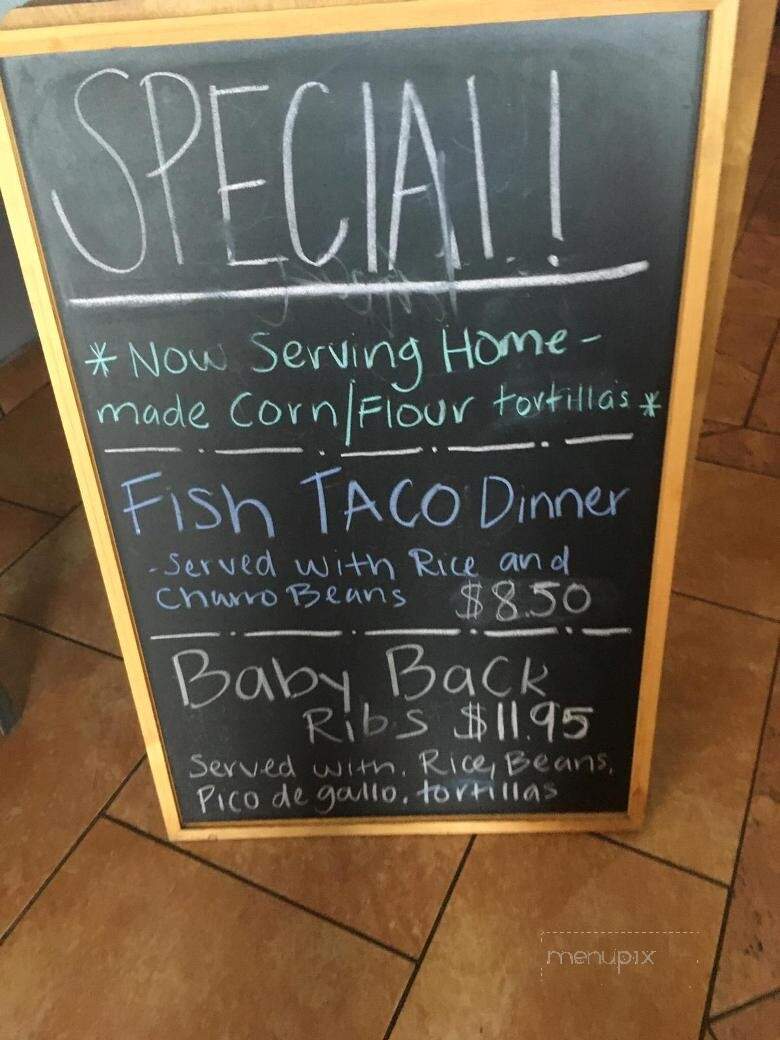 SPECIAL!
*Now Serving Home-
made Corn/Flour tortillas*
Fish TACO Dinner
-Served with Rice and
Charro Beans $8.50
Baby Back
Ribs $11.95
Served with, Rice, Beans,
Pico de gallo, tortillas
menupix